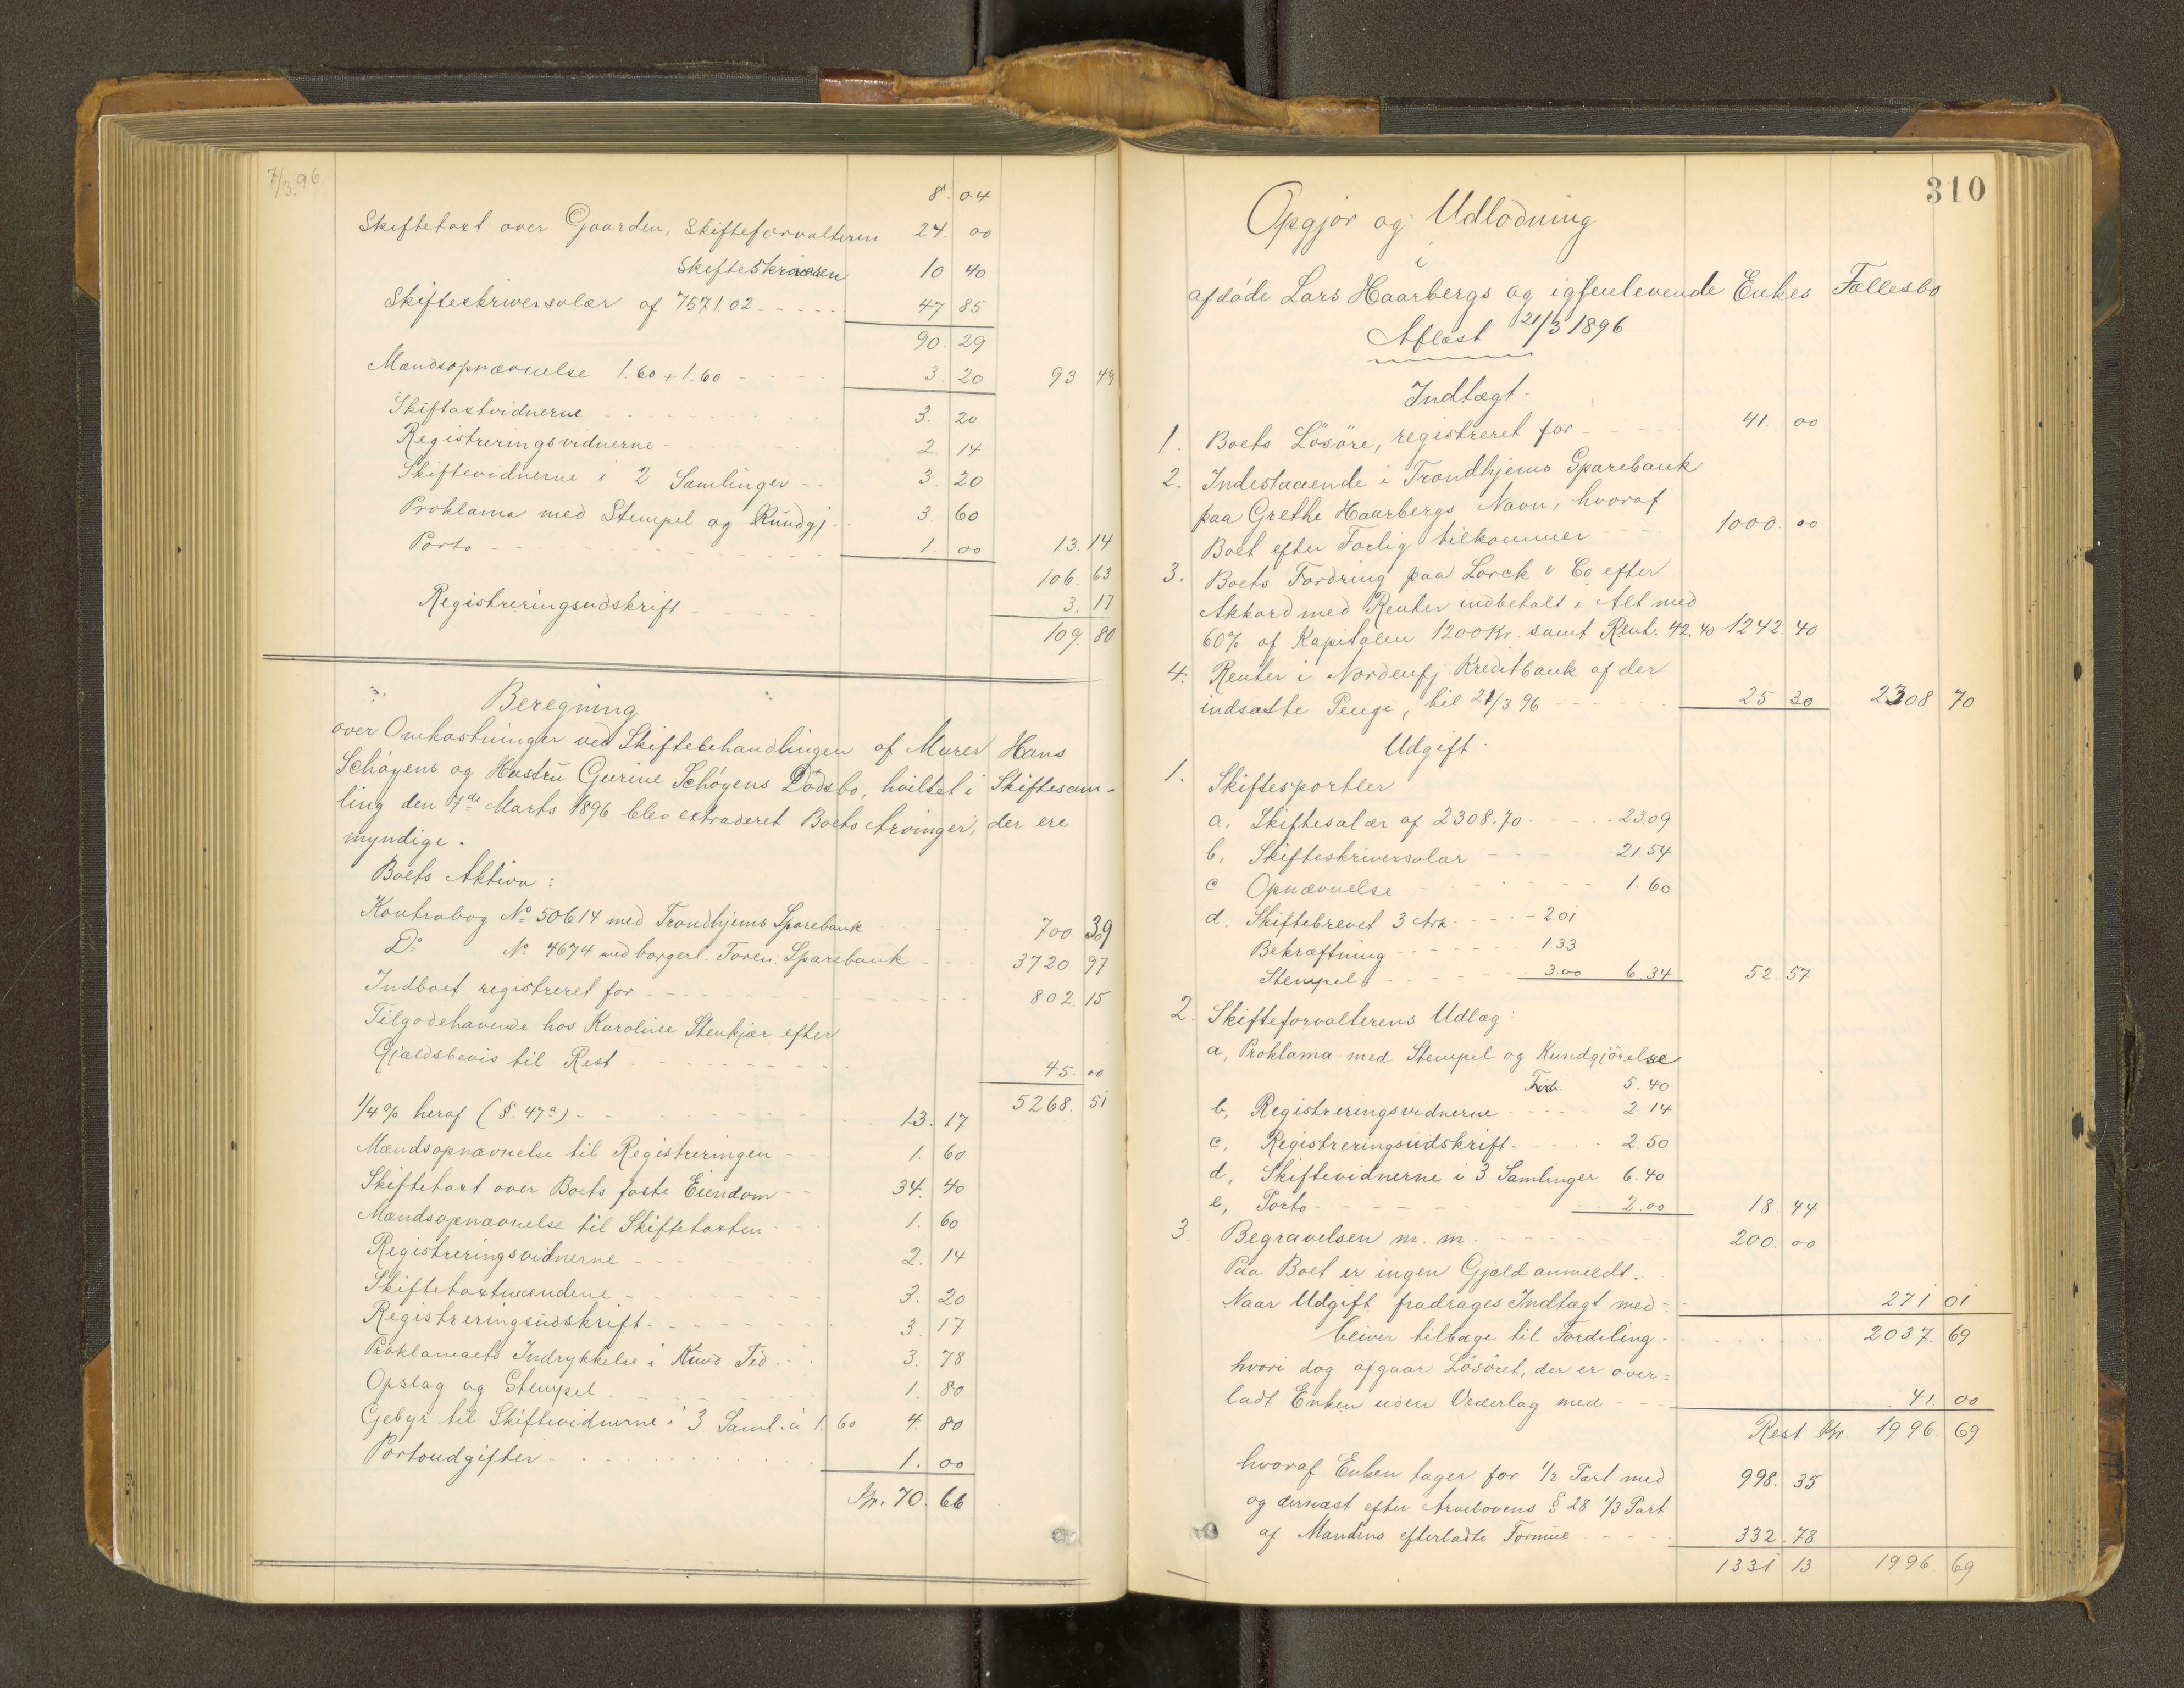 7/3.96
8. 04
Skiftetaxt over Gaarden, Skifteforvalteren 24. 00
Skifteskriveren 10 40
Skifteskriversalær af 7571.02 - - - - - 47 85
90. 29
Mændsopnævnelse 1.60 + 1.60 - - - - 3. 20 93 49
Skiftaxtvidnerne - - - - - - - 3. 20
Registreringsvidnerne - - - - 2. 14
Skiftevidnerne i 2 Samlinger - - 3. 20
Proklama med Stempel og Kundgj - - 3. 60
Porto - - - - - - - - - 1. 00 13. 14
106. 63
Registreringsudskrift - - - - - 3. 17
109. 80
Beregning
over Omkostninger ved Skiftebehandlingen af Murer Hans
Schøyens og Hustru Gurine Schøyens Dødsbo, hvilket i Skiftesam-
ling den 7de Marts 1896 blev extraderet Boets Arvinger, der ere
myndige.
Boets Aktiva:
Kontrabog No 50614 med Trondhjems Sparebank - - - - 700 39
Do No 4674 med borgerl. Foren. Sparebank - - - 3720 97
Indboet registreret for - - - - - - - - - 802. 15
Tilgodehavende hos Karoline Stenkjær efter
Gjældsbevis til Rest - - - - - - - - - 45. 00
5268. 51
1/4 % heraf (§. 47a) - - - - - - - - 13. 17
Mændsopnævnelse til Registreringen - - - 1. 60
Skiftetaxt over Boets faste Eiendom - - 34. 40
Mændsopnævnelse til Skiftetaxten - - - 1. 60
Registreringsvidnerne - - - - - - - 2. 14
Skiftetaxtmændene - - - - - - - - 3. 20
Registreringsudskrift - - - - - - - 3. 17
Proklamaets Indrykkelse i Kund Tid - - - 3. 78
Opslag og Stempel - - - - - - - - 1. 80
Gebyr til Skiftevidnerne i 3 Saml. à 1. 60 4. 80
Portoudgifter - - - - - - - - - - 1. 00
Kr. 70. 66
310
Opgjør og Udlodning
i
afdøde Lars Haarbergs og igjenlevende Enkes Fællesbo
Aflæst 21/3 1896
Indtægt -
1. Boets Løsøre, registreret for - - - - 41. 00
2. Indestaaende i Trondhjems Sparebank
paa Grethe Haarbergs Navn, hvoraf
Boet efter Forlig tilkommer - - - 1000. 00
3. Boets Fordring paa Lorck & Co efter
Akkord med Renter indbetalt i Alt med
60% af Kapitalen 1200 Kr. samt Rent. 42.40 1242. 40
4. Renter i Nordenfj Kreditbank af der
indsatte Penge, til 21/3 96 - - - - - - 25 30 2308 70
Udgift -
1. Skiftesportler
a. Skiftesalær af 2308.70 - - - - - 23.09
b. Skifteskriversalær - - - - 21.54
c Opnævnelse - - - - - - - 1. 60
d. Skiftebrevet 3 Ark - - - - 2.01
Bekræftning - - - - - - - 1.33
Stempel - - - - - - 3.00 6.34 52. 57
2. Skifteforvalterens Udlæg:
a, Proklama med Stempel og Kundgjørelse
5. 40
b, Registreringsvidnerne - - - - - 2. 14
c, Registreringsudskrift - - - - 2. 50
d, Skiftevidnerne i 3 Samlinger 6. 40
e, Porto - - - - - - - - - 2.00 18. 44
3. Begravelsen m. m. - - - - - - - 200. 00
Paa Boet er ingen Gjæld anmeldt.
Naar Udgift fradrages Indtægt med - - 271 01
bliver tilbage til Fordeling - - - - - - 2037. 69
hvori dog afgaar Løsøret, der er over=
ladt Enken uden Vederlag med - - - 41. 00
Rest Kr. 1996. 69
hvoraf Enken tager for 1/2 Part med 998. 35
og dernæst efter Arvelovens § 28 1/3 Part
af Mandens efterladte Formue - - - - - 332. 78
1331 13 1996 69